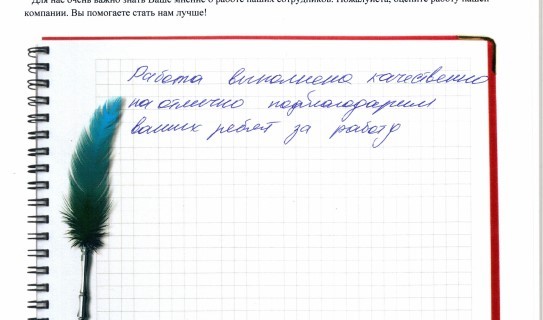 Для нас очень важно знать Ваше мнение о работе наших сотрудников. Пожалуйста, оцените работу нашей
компании. Вы помогаете стать нам лучше!
Работа выполнена качественно
на отлично подблагодарим
ваших ребят за работу